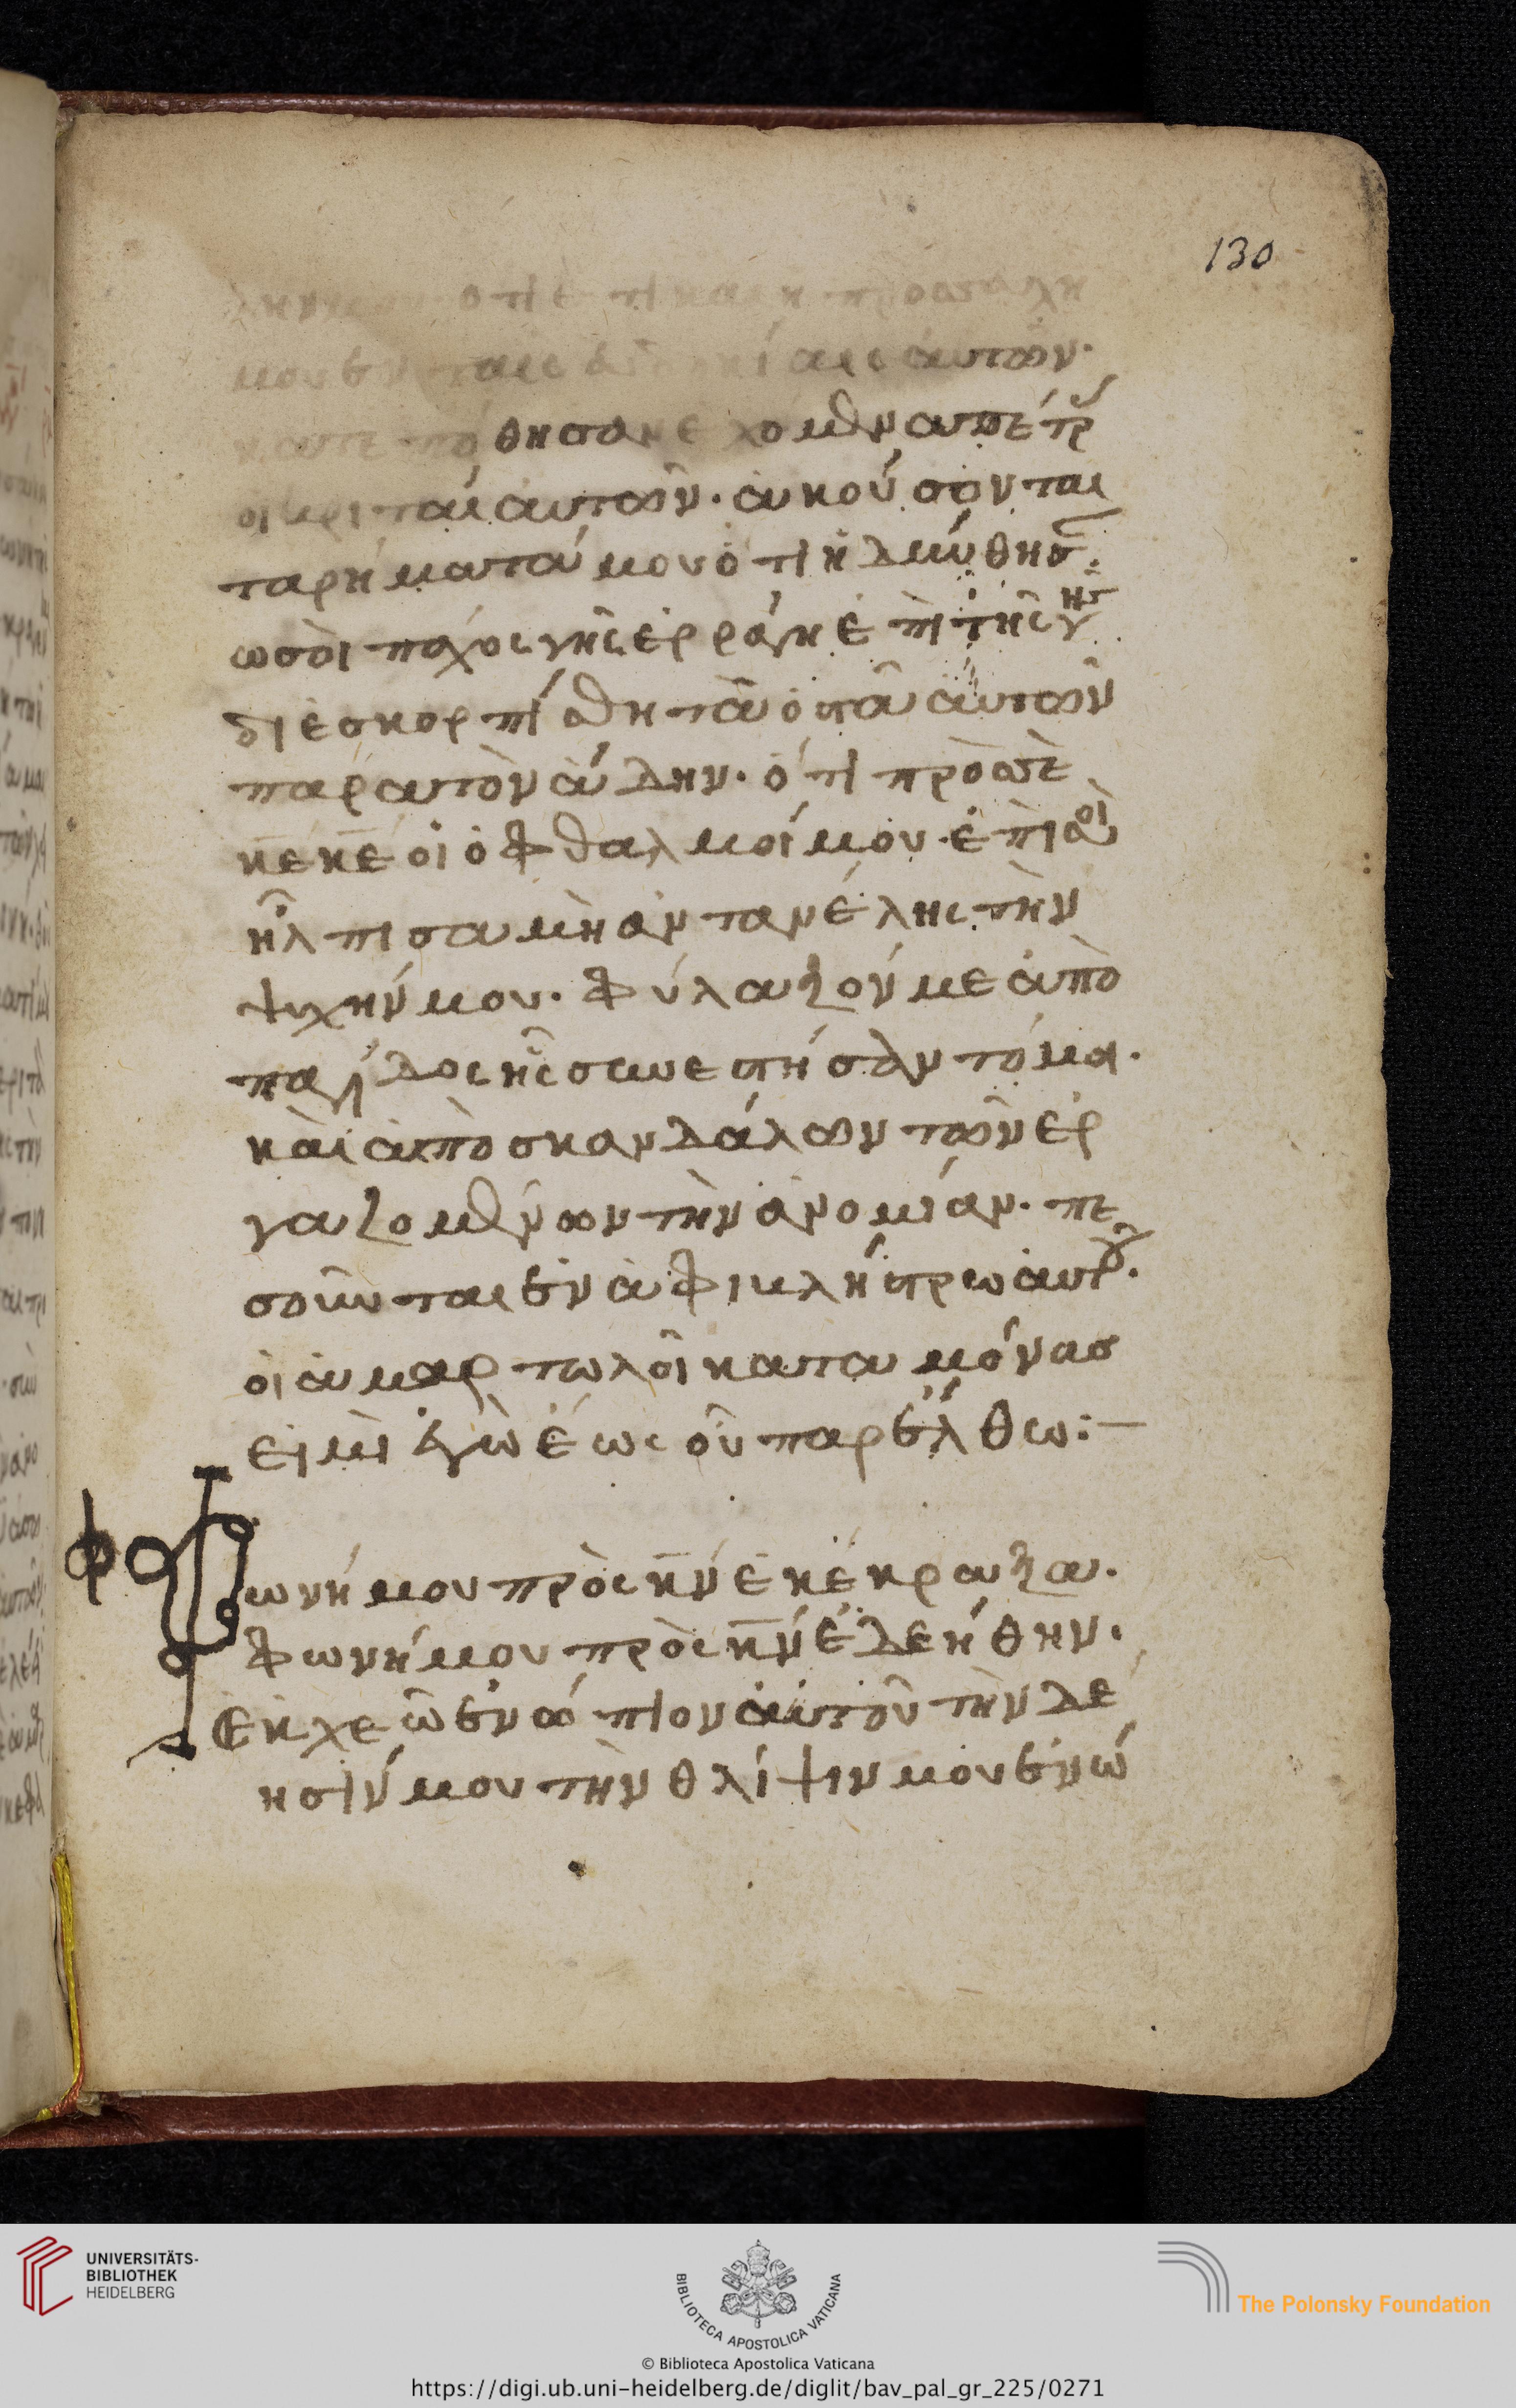 130
ὅτι ἔτι καὶ ἡ προσευχή
μου ἐν ταῖς εὐδοκίαις αὐτῶν·
θησαν ἐχόμενα πέτρ
οἱ κριταὶ αὐτῶν· ἀκούσονται
τα ρήματά μου ὅτι ἡδυνθησ
ωσεὶ παχος γῆς ἐρράγη ἐπὶ τῆς γῆς
διεσκορπίσθη τὰ ὀστᾶ αὐτῶν
παρα τὸν ἅδην· ὅτι πρὸσ σὲ
κ̅ε κ̅ε οἱ ὀφθαλμοί μου· ἐπὶ σοὶ
ἤλπισα μὴ ἀντανέλης τὴν
ψυχήν μου· φύλαξόν με ἀπὸ
παγίδος ἧς συνεστήσαντό μοι·
καὶ ἀπὸ σκανδάλων τῶν ἐρ
γαζομένων τὴν ἀνομίαν· πε
σοῦνται ἐν ἀφικλήστρω αὐτοῦ·
οἱ ἁμαρτωλοὶ καταμόνασ
εἰμὶ ἐγὼ ἕως οὗ παρέλθω:—
Φωνή μου πρὸς κ̅ν ἐκέκραξα·
φωνή μου πρὸς κ̅ν ἐδεήθην·
Ἐκχεῶ ἐνώπιον αὐτοῦ τὴν δέ
ησίν μου τὴν θλίψιν μου ἐνώ
UNIVERSITÄTS-
BIBLIOTHEK
HEIDELBERG
BIBLIOTECA APOSTOLICA VATICANA
The Polonsky Foundation
© Biblioteca Apostolica Vaticana
https://digi.ub.uni-heidelberg.de/diglit/bav_pal_gr_225/0271